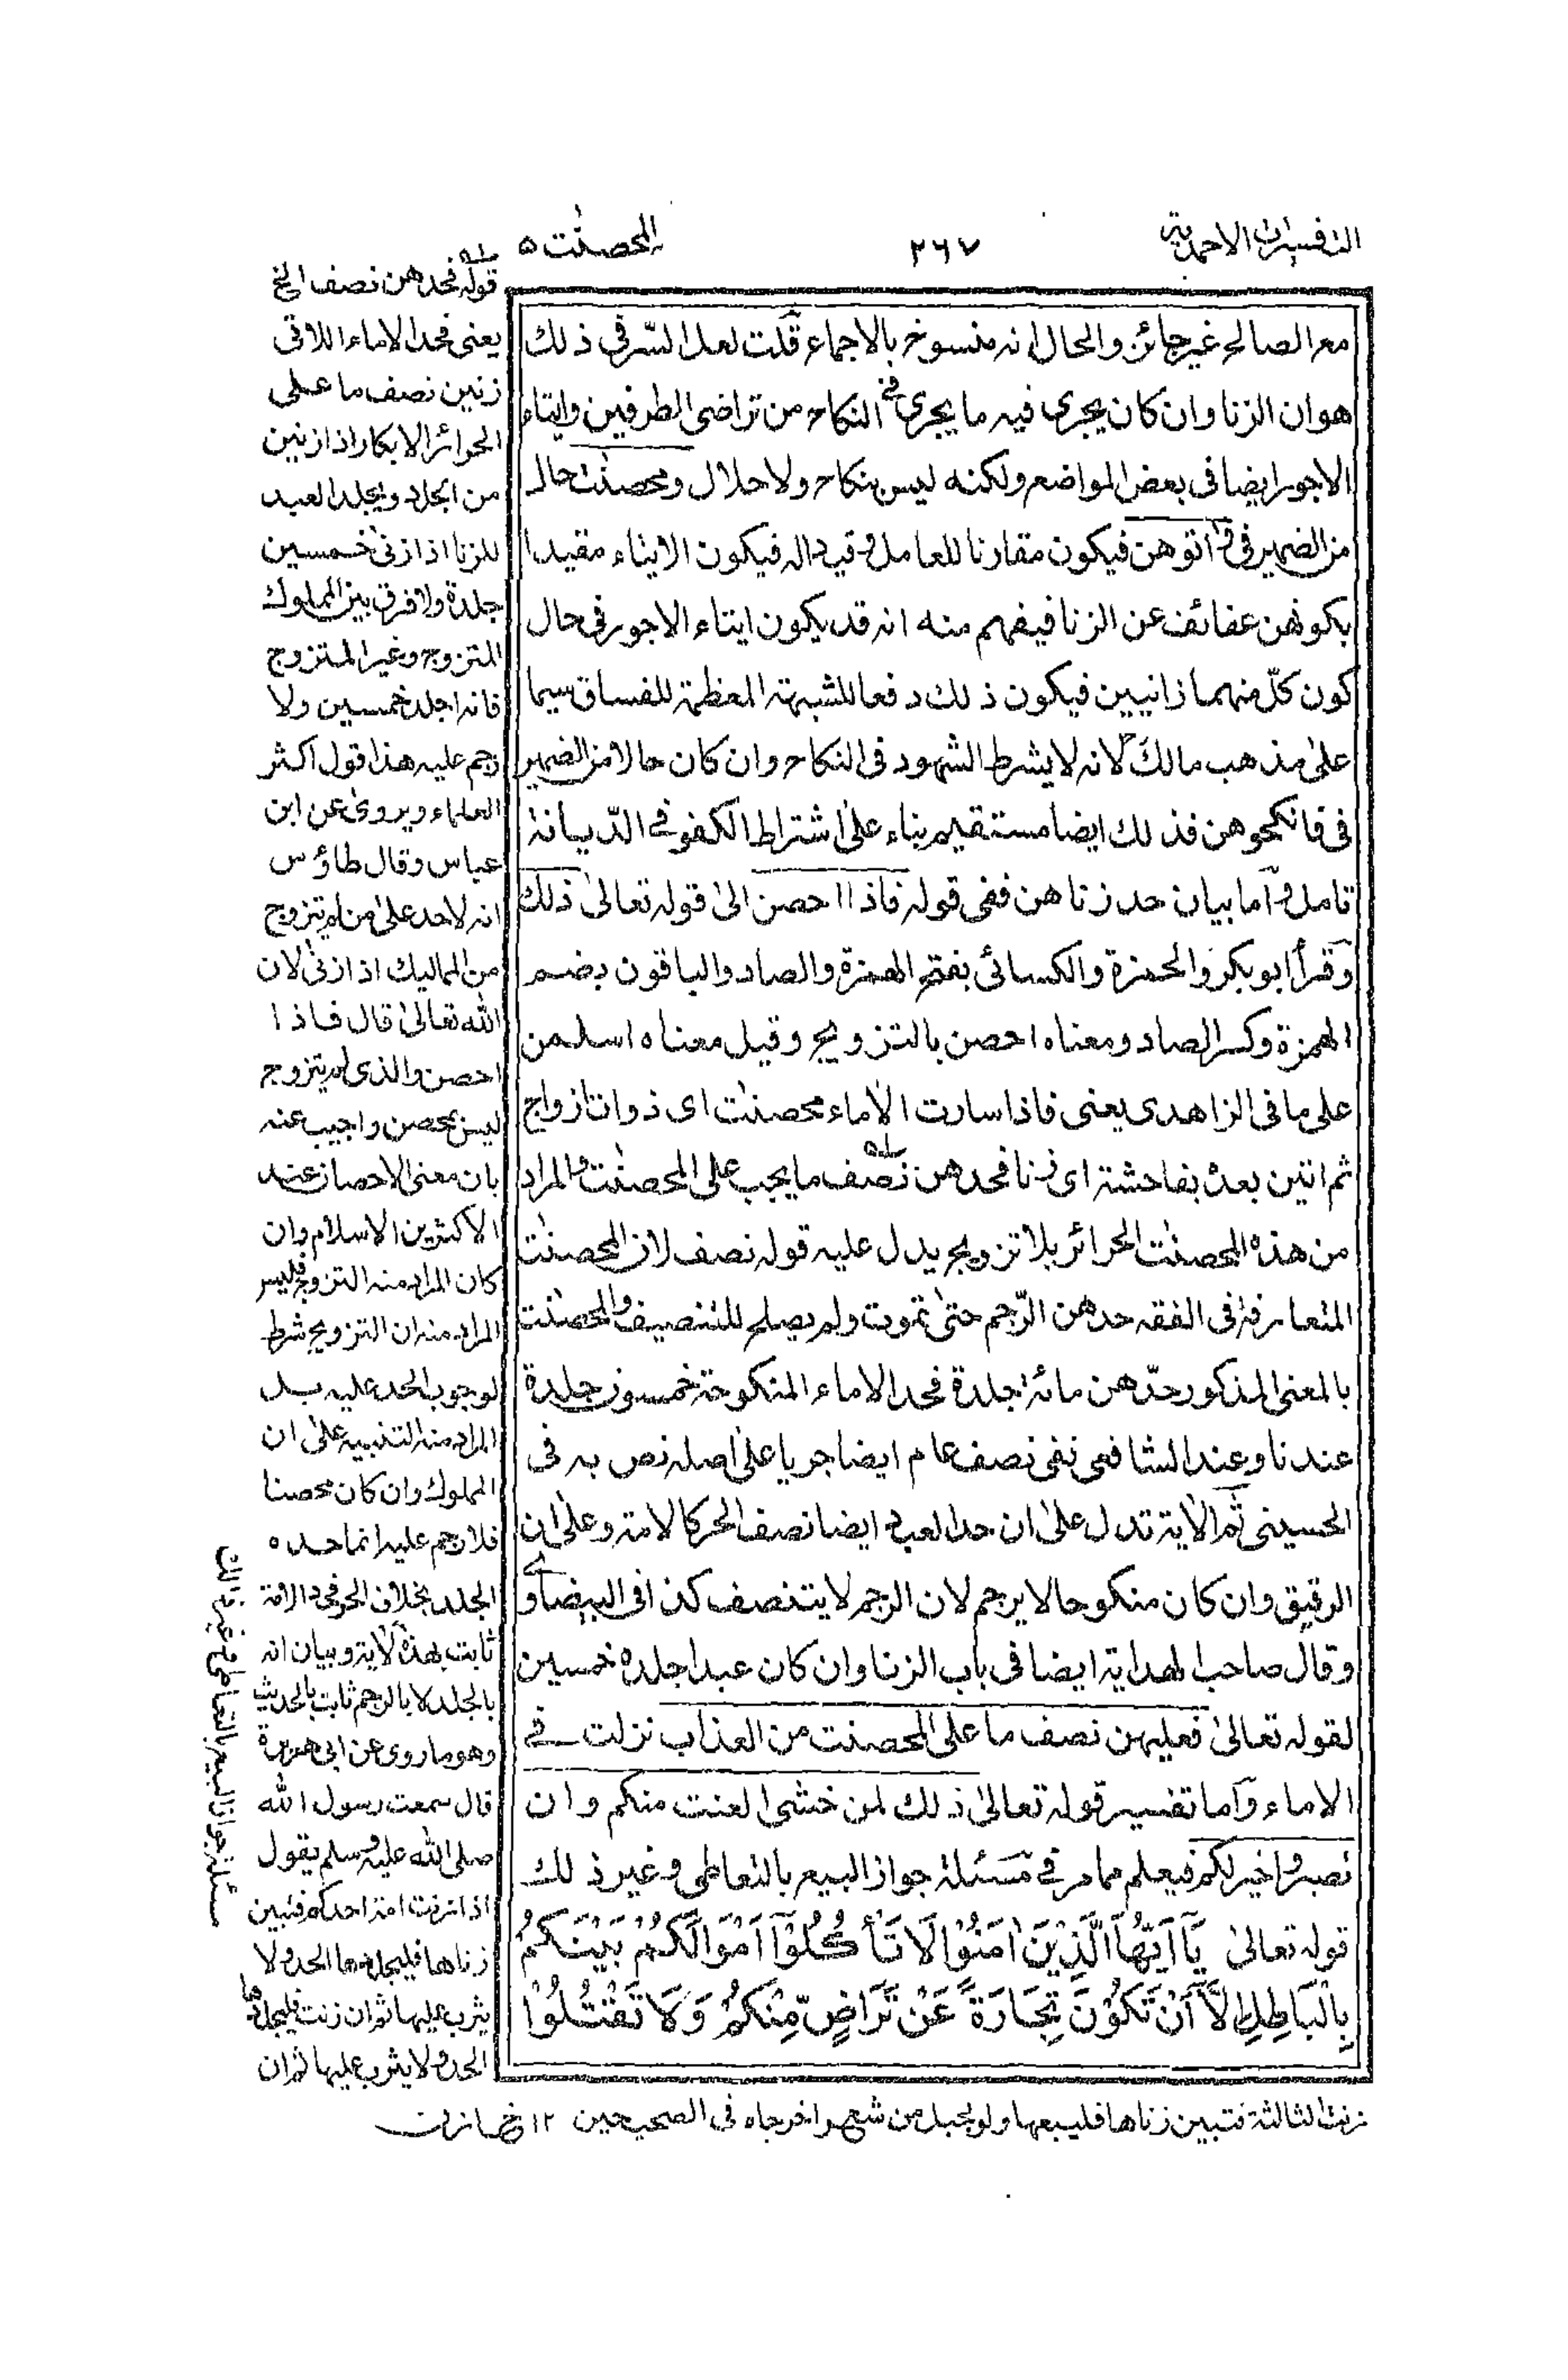 التفسيرات الاحمدية
٢٦٧
المحصنٰت ٥
مع الصالح غير جائز والحال انه منسوخ بالاجماع قلت لعل السّر في ذلك
هو ان الزنا وان كان يجري فيه ما يجري في النكاح من تراضى الطرفين وايتاء
الاجور ايضا في بعض المواضع ولكنه ليس بنكاح ولا حلال ومحصنٰت حال
من الضمير في واٰتوهن فيكون مقارنا للعامل وقيد اله فيكون الايتاء مقيدا
بكونهن عفائف عن الزنا فيفهم منه انه قد يكون ايتاء الاجور في حال
كون كلّ منهما زانيين فيكون ذلك دفعا للشبهة المعظمة للفساق سيما
علىٰ مذهب مالك لانه لا يشرط الشهود في النكاح وان كان حالا من الضمير
في فانكحوهن فذلك ايضا مستقيم بناء علىٰ اشتراط الكفو في الدّيانة
تامل وآما بيان حد زناهن ففى قوله فاذا احصن الىٰ قوله تعالىٰ ذلك
وقرأ ابو بكر والحمزة والكسائى بفتح الهمزة والصاد والباقون بضم
الهمزة وكسر الصاد ومعناه احصن بالتزويج وقيل معناه اسلمن
على ما في الزاهدى يعنى فاذا سارت الاماء محصنٰت اى ذوات ازواج
ثم اتين بعدهٗ بفاحشة اى زنا فحدهن نصف ما يجب على المحصنٰت والمراد
من هذه المحصنٰت الحرائر بلا تزويج يدل عليه قوله نصف لان المحصنٰت
المتعارفة في الفقه حدهن الرّجم حتىٰ تموت ولم يصلح للتنصيف والمحصنٰت
بالمعنى المذكور حدّهن مائة جلدة فحد الاماء المنكوحة خمسون جلدة
عندنا وعند الشافعى نفى نصف عام ايضا جريا علىٰ اصله نص به في
الحسينى ثم الاٰية تدل علىٰ ان حد العبد ايضا نصف الحر كالامة وعلىٰ ان
الرقيق وان كان منكوحا لا يرجم لان الرجم لا يتنصف كذا في البيضاوى
وقال صاحب الهداية ايضا في باب الزنا وان كان عبدا جلده خمسين
لقوله تعالىٰ فعليهن نصف ما على المحصنت من العذاب نزلت في
الاماء وآما تفسير قوله تعالىٰ ذلك لمن خشى العنت منكم وان
تصبروا خير لكم فيعلم مما مر في مسئلة جواز البيع بالتعاطى وغير ذلك
قوله تعالىٰ يَآ اَيُّهَا الَّذِيْنَ اٰمَنُوْا لَا تَاْكُلُوْٓا اَمْوَالَكُمْ بَيْنَكُمْ
بِالْبَاطِلِ اِلَّآ اَنْ تَكُوْنَ تِجَارَةً عَنْ تَرَاضٍ مِّنْكُمْ وَلَا تَقْتُلُوْا
قوله فحدهن نصف الخ
يعنى فحد الاماء اللاتى
زنين نصف ما على
الحرائر الابكار اذا زنين
من الجلد ويجلد العبد
للزنا اذا زنىٰ خمسين
جلدة ولا فرق بين المملوك
المتزوج وغير المتزوج
فانه اجلد خمسين ولا
رجم عليه هذا قول اكثر
العلماء ويروىٰ عن ابن
عباس وقال طاؤس
انه لا حد علىٰ من لم يتزوج
من المماليك اذا زنىٰ لان
الله تعالىٰ قال فاذا
احصن والذى لم يتزوج
ليس بمحصن واجيب عنه
بان معنى الاحصان عند
الاكثرين الاسلام وان
كان المراد منه التزوج فليس
المراد منه ان التزويج شرط
لوجوب الحد عليه بل
المراد منه التنبيه علىٰ ان
المملوك وان كان محصنا
فلا رجم عليه انما حده
الجلد بخلاف الحر فحد الامة
ثابت بهذه الاٰية وبيان انه
بالجلد لا بالرجم ثابت بالحديث
وهو ما روى عن ابى هريرة
قال سمعت رسول الله
صلى الله عليه وسلم يقول
اذا زنت امة احدكم فتبين
زناها فليجلدها الحد ولا
يثرب عليها ثم ان زنت فليجلدها
الحد ولا يثرب عليها ثم ان
زنت الثالثة فتبين زناها فليبعها ولو بحبل من شعر اخرجاه في الصحيحين ١٢ خازن
مسئلة جواز البيع بالتعاطى وغير ذلك